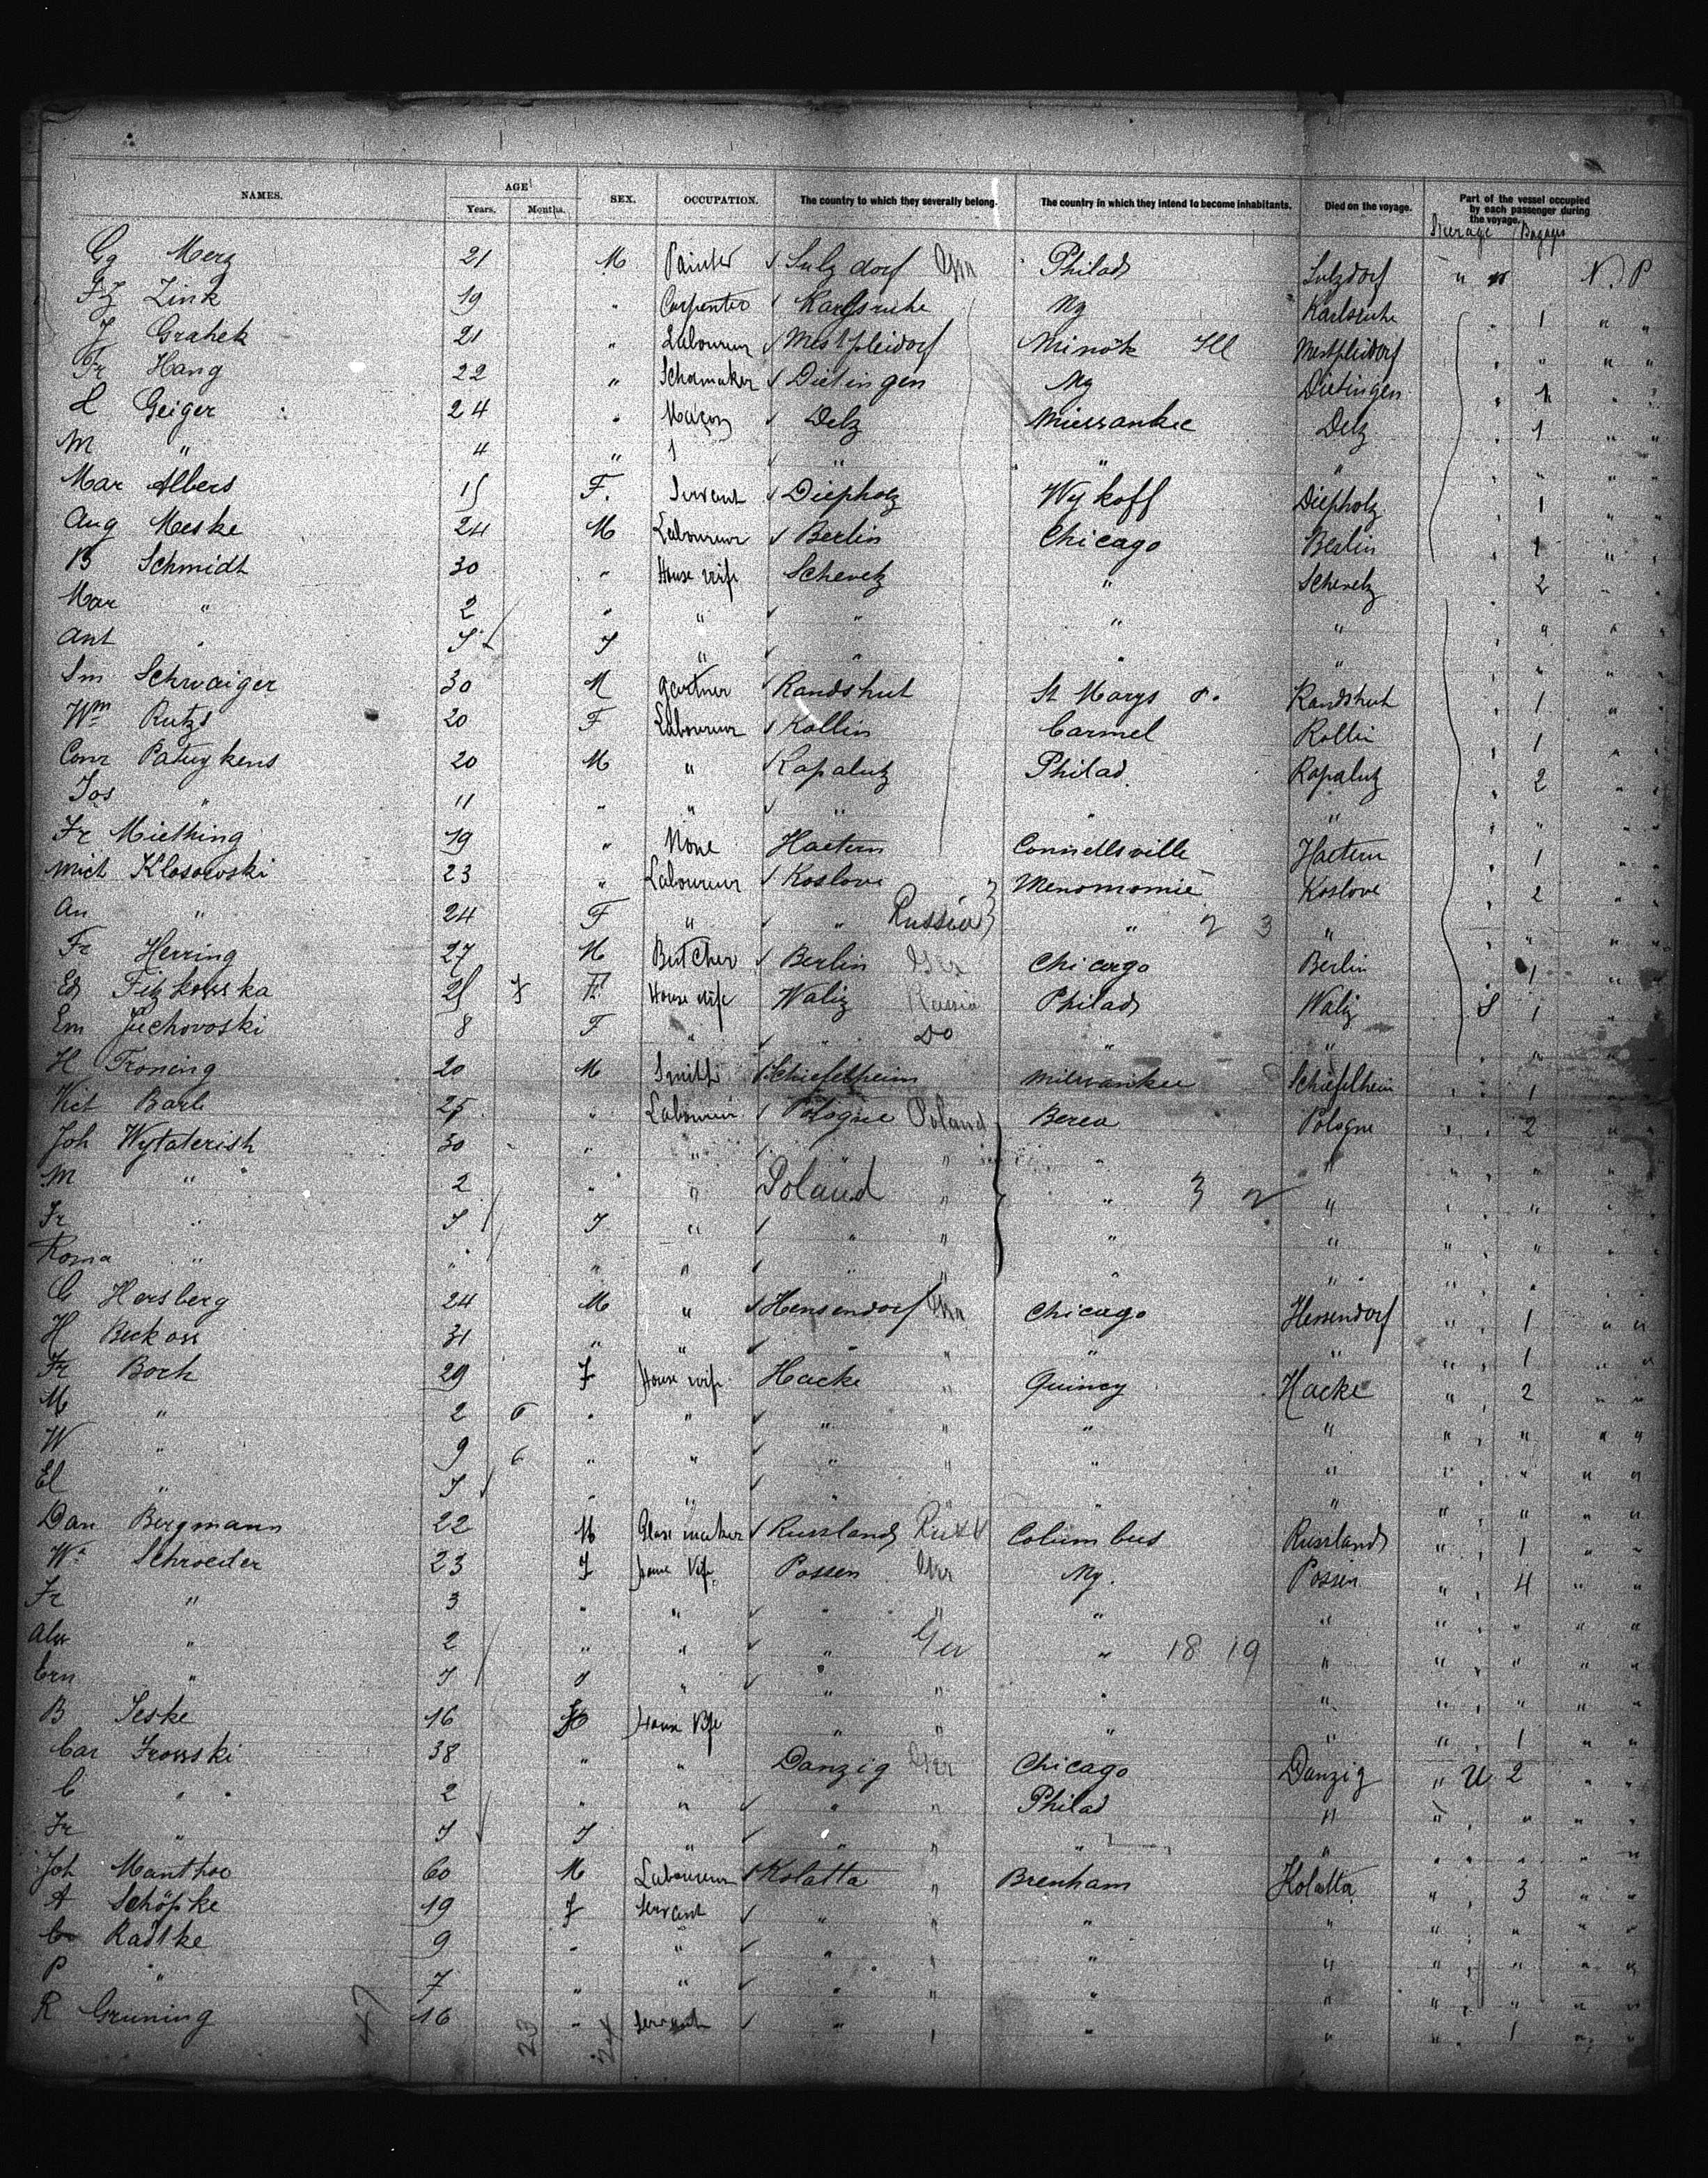 NAMES. AGE Years. Months. SEX. OCCUPATION. The country to which they severally belong. The country in which they intend to become inhabitants. Died on the voyage. Part of the vessel occupied by each passenger during the voyage.
Steerage
Gg Merz 21 M Painter Sulzdorf Philad Sulzdorf " N. P
Fz Zink 19 " Carpenter Karlsruhe Ny Karlsruhe " 1 " "
J Grahek 21 " Laboureur Minok Ill " " " "
Fr Hang 22 " Schomaker Dietingen Ny Dietingen " 1 " "
L Geiger 24 " Delz Delz " 1 " "
M " 4 " " " " " " " "
Mar Albers 15 F. Servant Diepholz Wykoff Diepholz " 1 " "
Aug Meske 24 M Laboureur Berlin Chicago Berlin " 1 " "
B Schmidt 30 " House wife Schevetz " Schevetz " 2 " "
Mar " 2 " " " " " " " " "
Ant " J J " " " " " " " "
Sm Schwaiger 30 M Gartner Randshut St Marys o. Randshut " 1 " "
Wm Rutzs 20 F Laboureur Rollin Carmel Rollin " 1 " "
Conr 20 M " Rapalutz Philad. Rapalutz " 2 " "
Jos " 11 " " " " " " " " "
Fr Miething 19 " None Haetern Connellsville Haetern " 1 " "
Mich Klosowski 23 " Laboureur Koslove Menomomie Koslove " 2 " "
An " 24 F " " Russia " 2 3 " " " " "
Fr Herring 27 M Butcher Berlin Ger Chicargo Berlin " 1 " "
Ed Fitzkowska 25 F House wife Waliz Russia Philad Waliz S 1 "
Em Juchovoski 8 F " " Do " " " " " "
H Froning 20 M Smith Schiefelheim Milwaukee Schiefelhein " 1 " "
Vict Barli 25 " Laboureur Pologne Poland Berea Pologne " " 2 " "
Joh Wytaterish 30 " " " " " " " " " "
M " 2 " " Poland " " 3 2 " " " " "
Fr " J J " " " " " " " " "
Roma " " " " " " " " " " " "
G Hersberg 24 M " Hensendorf Ger Chicago Hensendorf " " 1 " "
H Beckoss 31 " " " " " " " " 1 " "
Fr Boch 29 F House wife Hacke " Quincy Hacke " " 2 " "
M " 2 6 " " " " " " " " " " "
W " 9 6 " " " " " " " " " " "
El " J " " " " " " " " " " "
Dan Bergmann 22 M Glase maker Russland Russ Columbus Russland " " 1 " "
Wa Schroeder 23 F Possen Ger Ny. Possen " " 4 " "
Fr " 3 " " " " " " " " " " "
Alw " 2 " " " Ger " 18 19 " " " " " "
Ern " J J " " " " " " " " " "
B Seske 16 " " " " " " 1 " "
Car Frosski 38 " " Danzig Ger Chicago Danzig " U 2 " "
C " 2 " " " " Philad " " " " " "
Fr " J J " " " " " " " " " "
Joh Manthee 60 M Laboureur Kolatta " Brenham Kolatta " " 3 " "
A Schöpke 19 F Servant " " " " " " " " "
Radtke 9 " " " " " " " " " " "
P " 7 " " " " " " " " " " "
R Gruning 16 " Servant " " " " " " 1 " "
47 23 24